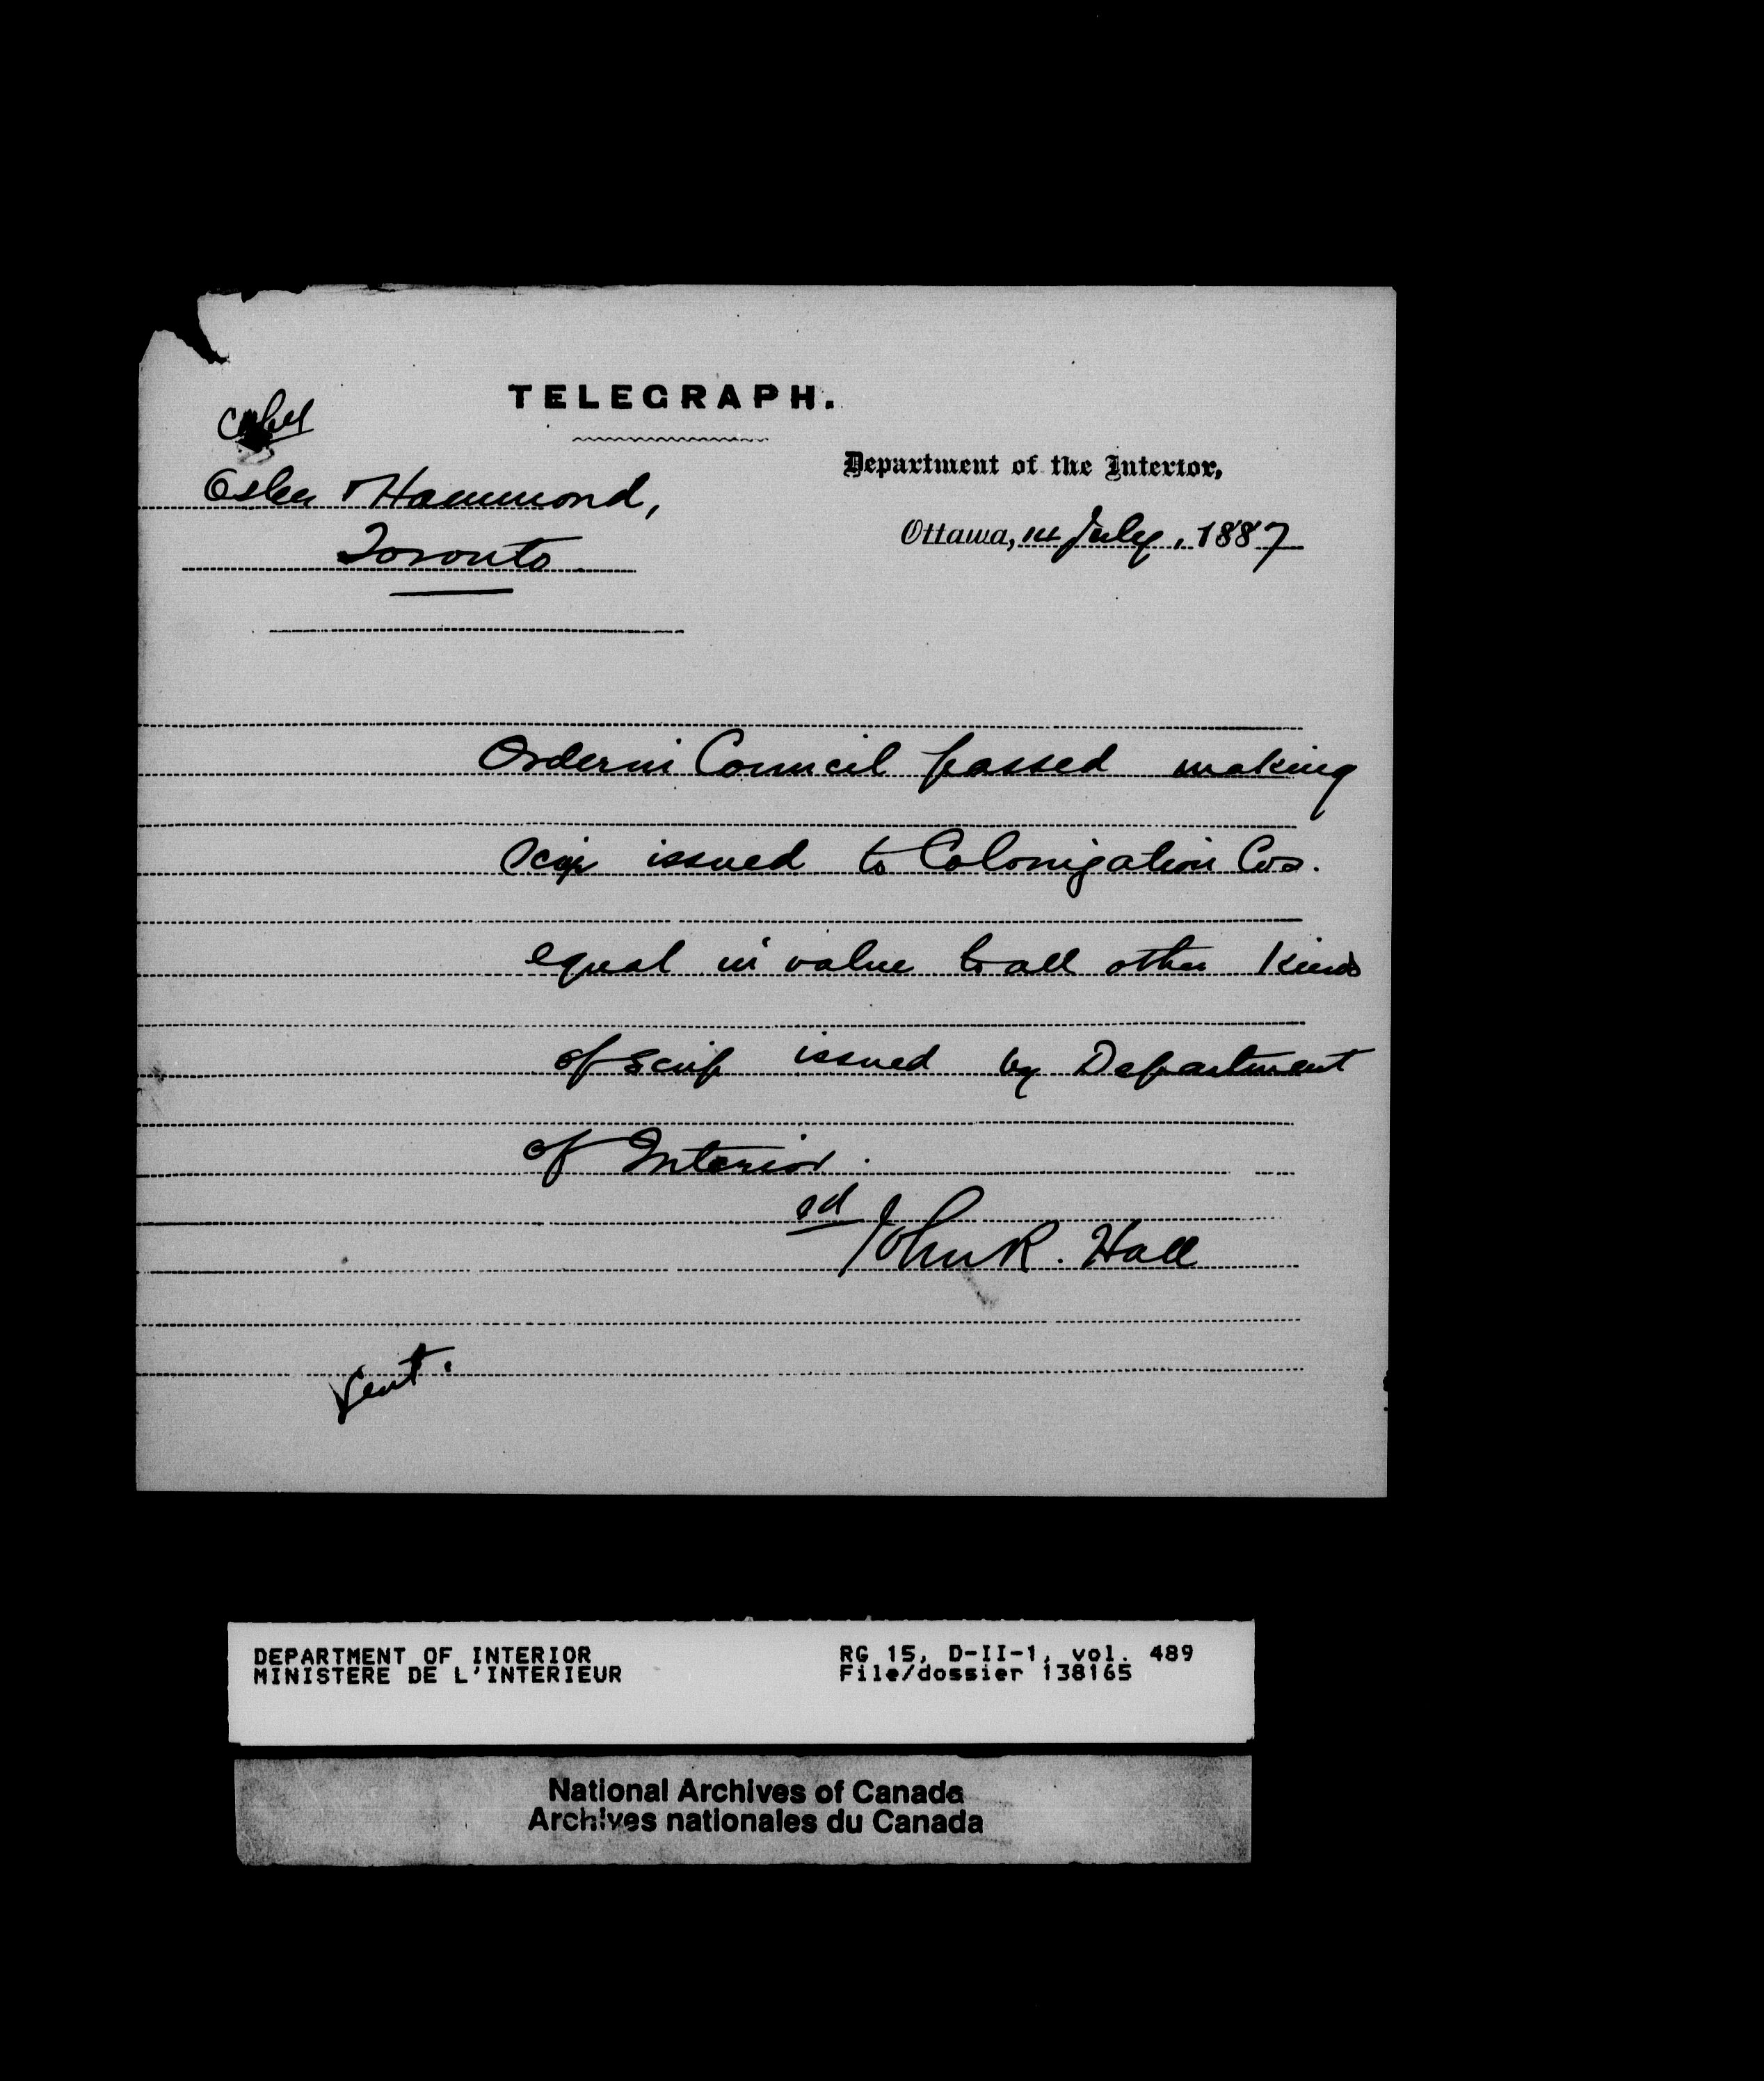 TELEGRAPH.
Department of the Interior,
Osler & Hammond,
Toronto
Ottawa, 14 July, 1887
Order in Council passed making
scrip issued to Colonization Cos.
equal in value to all other kinds
of scrip issued by Department
of Interior.
sd
John R. Hall
Sent.
DEPARTMENT OF INTERIOR
MINISTERE DE L'INTERIEUR
RG 15, D-II-1, vol. 489
File/dossier 138165
National Archives of Canada
Archives nationales du Canada